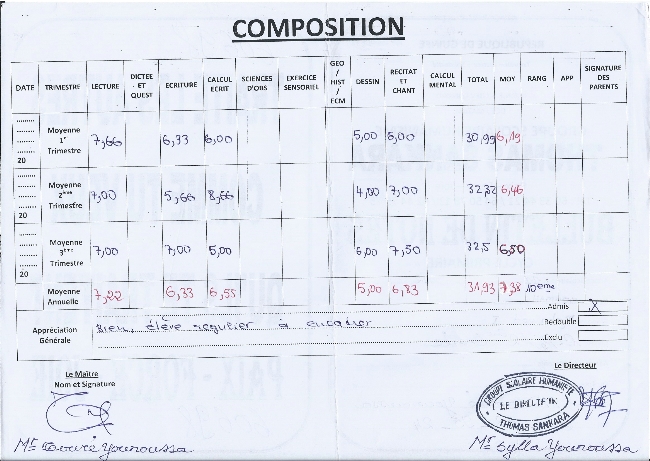 COMPOSITION
DATE TRIMESTRE LECTURE DICTEE ET QUEST ECRITURE CALCUL ECRIT SCIENCES D'OBS EXERCICE SENSORIEL GEO / HIST / ECM DESSIN RECITAT ET CHANT CALCUL MENTAL TOTAL MOY RANG APP SIGNATURE DES PARENTS
20 Moyenne 1° Trimestre 7,66 6,33 6,00 5,00 6,00 30,99 6,19
20 Moyenne 2ème Trimestre 7,00 5,66 8,66 4,00 7,00 32,32 6,46
20 Moyenne 3ème Trimestre 7,00 7,00 5,00 6,00 7,50 32,5 6,50
Moyenne Annuelle 7,22 6,33 6,55 5,00 6,83 31,93 7,38 10ème
Admis X
Appréciation Générale Bien, élève régulier à
Redouble
Exclu
Le Maître
Nom et Signature
Le Directeur
GROUPE SCOLAIRE HUMANITE
LE DIRECTEUR
THOMAS SANKARA
Mr Younoussa
Mr Sylla Younoussa